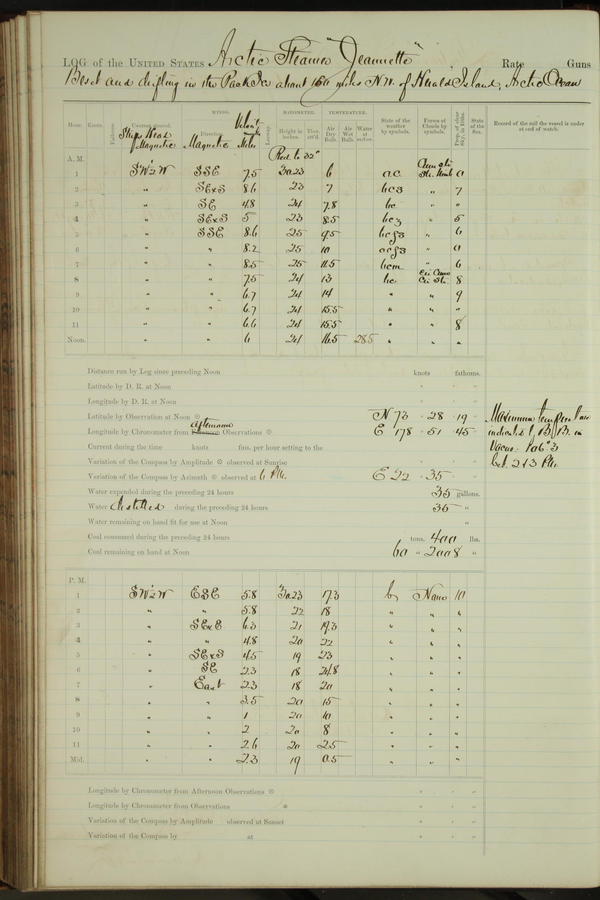 LOG of the UNITED STATES Arctic Steamer "Jeannette" Rate Guns
Beset and drifting in the Pack Ice about 160 miles N.W. of Herald Island, Arctic Ocean
WINDS. BAROMETER. TEMPERATURE.
Hour. Knots. Fathoms. Courses steered. Ship's Head Magnetic Direction. Magnetic Velocity Miles Leeway. Height in inches. Ther. att'd. Air Dry Bulb. Air Wet Bulb. Water at surface. State of the weather by symbols. Forms of Clouds by symbols. Prop. of clear sky, in 10ths. State of the Sea. Record of the sail the vessel is under at end of watch.
A. M. Red. to 32°
1 SW½W SSE 7.5 30.23 6 o.c. 0
2 " SExS 8.6 23 7 bcz " 7
3 " SE 4.8 24 7.8 bc " "
4 " SExS 5 23 8.5 bcz " 5
5 " SSE 8.6 25 9.5 " 6
6 " " 8.2 25 10 " 0
7 " " 8.5 25 11.5 bcm " 6
8 " " 7.5 24 13 bc 8
9 " " 6.7 24 14 " " 9
10 " " 6.7 24 15.5 " " "
11 " " 6.6 24 15.5 " " 8
Noon. " " 6 24 16.5 28.5 " " "
Distance run by Log since preceding Noon knots fathoms.
Latitude by D. R. at Noon
Longitude by D. R. at Noon
Latitude by Observation at Noon N 73 28 19
Longitude by Chronometer from afternoon Observations E 178 51 45
Maximum temperature
indicated by B.B. in
Vacuo
Current during the time knots fms. per hour setting to the
Variation of the Compass by Amplitude observed at Sunrise
Variation of the Compass by Azimuth observed at 6 P.M. E 22 35
Water expended during the preceding 24 hours 35 gallons.
Water distilled during the preceding 24 hours 35 "
Water remaining on hand fit for use at Noon "
Coal consumed during the preceding 24 hours tons. 400 lbs.
Coal remaining on hand at Noon 60 " 2008 "
P. M.
1 SW½W ESE 5.8 30.23 17.3 b None 10
2 " " 5.8 22 18 " " "
3 " SExE 6.3 21 19.3 " " "
4 " " 4.8 20 22 " " "
5 " SExS 4.5 19 23 " " "
6 " SE 2.3 18 24.8 " " "
7 " East 2.3 18 20 " " "
8 " " 3.5 20 15 " " "
9 " " 1 20 10 " " "
10 " " 2 20 8 " " "
11 " " 2.6 20 2.5 " " "
Mid. " " 2.3 19 0.5 " " "
Longitude by Chronometer from Afternoon Observations
Longitude by Chronometer from Observations
Variation of the Compass by Amplitude observed at Sunset
Variation of the Compass by at